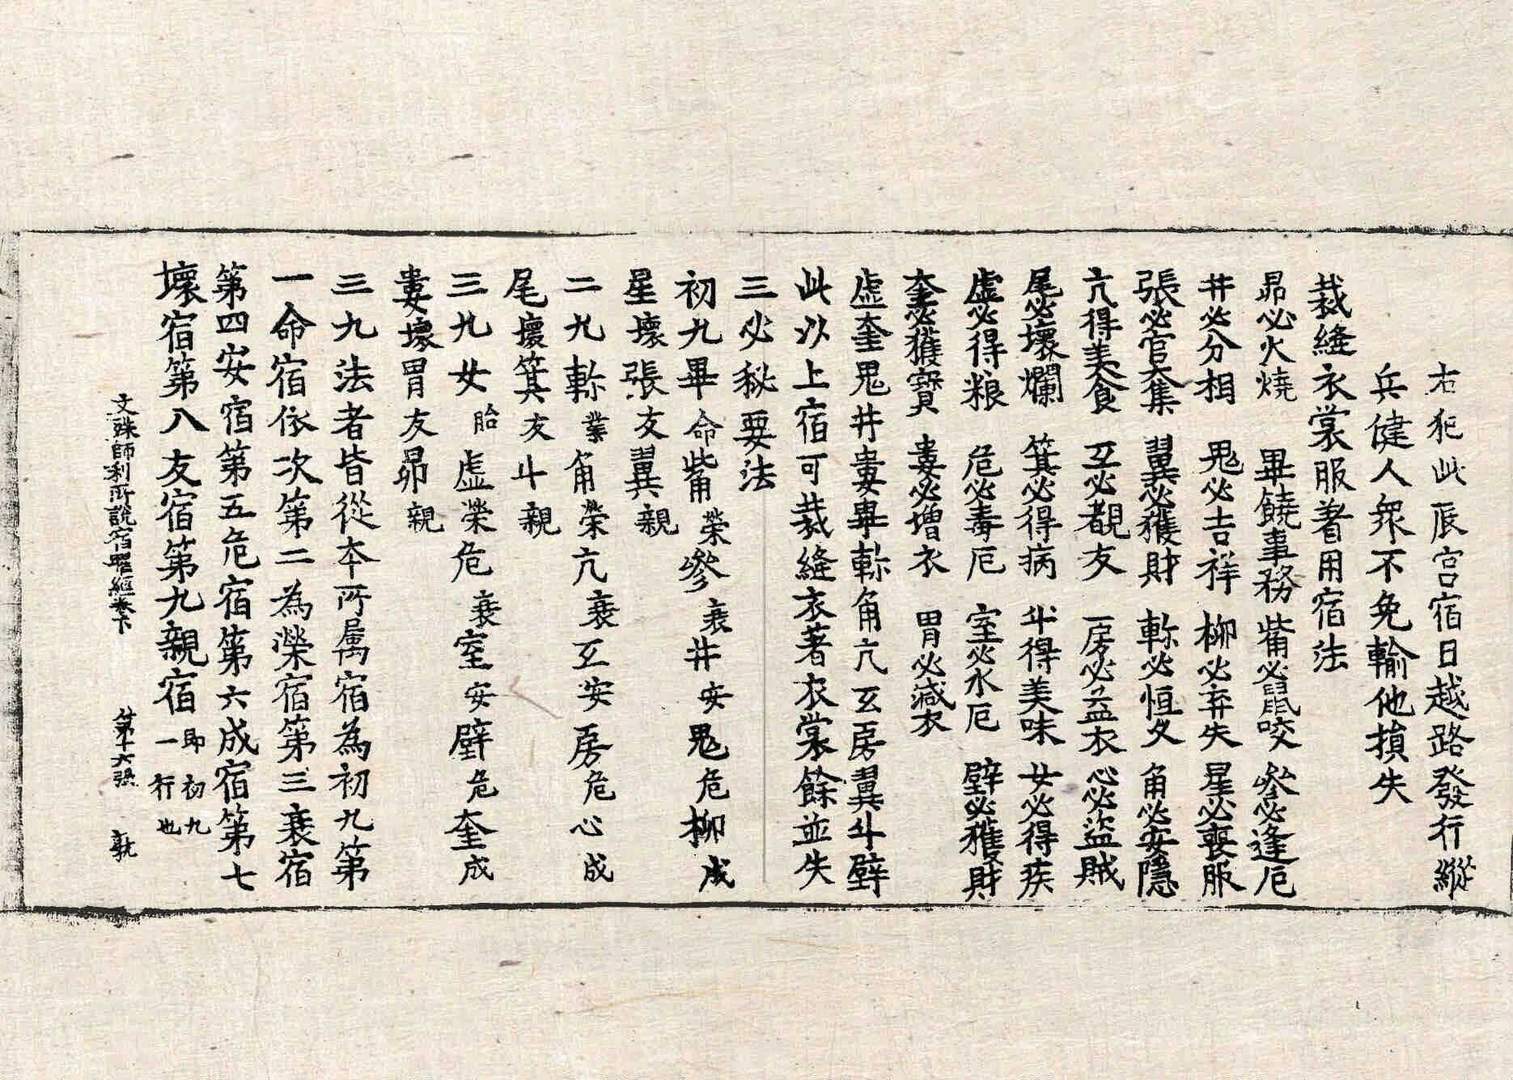 右犯此辰宮宿日越路發行縱
兵健人衆不免輸他損失
裁縫衣裳服著用宿法
昴必火燒 畢饒事務 觜必鼠咬 參必逢厄
井必分相 鬼必吉祥 柳必弃失 星必喪服
張必官集 翼必獲財 軫必恒久 角必安隱
亢得美食 氐必覩友 房必益衣 心必盜賊
尾必壞爛 箕必得病 斗得美味 女必得疾
虛必得粮 危必毒厄 室必水厄 壁必獲財
奎必獲寶 婁必增衣 胃必減衣
虛奎鬼井婁畢軫角亢氐房翼斗壁
此以上宿可裁縫衣著衣裳餘並失
三九秘要法
初九畢命觜榮參衰井安鬼危柳成
星壞張友翼親
二九軫業角榮亢衰氐安房危心成
尾壞箕友斗親
三九女胎虛榮危衰室安壁危奎成
婁壞胃友昴親
三九法者皆從本所属宿為初九第
一命宿依次第二為榮宿第三衰宿
第四安宿第五危宿第六成宿第七
壞宿第八友宿第九親宿即初九一行也
文殊師利所說宿曜經卷下 第十六張 執